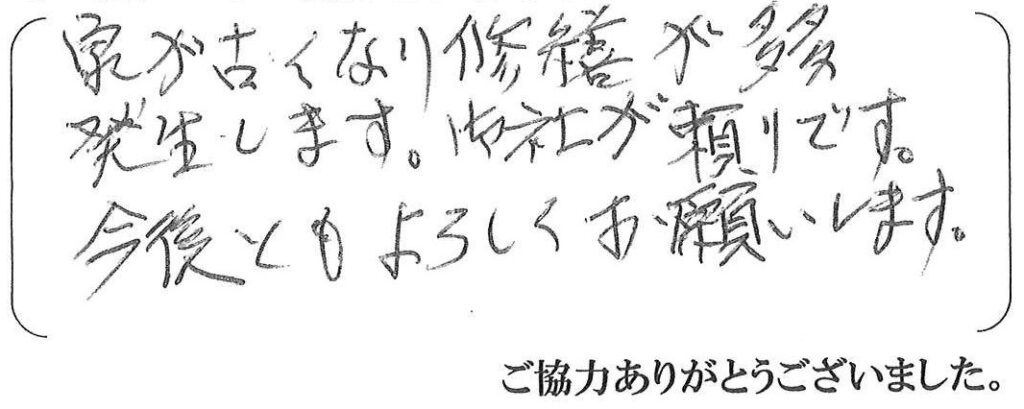 家が古くなり修繕が多
発生します。御社が頼りです。
今後ともよろしくお願いします。
ご協力ありがとうございました。